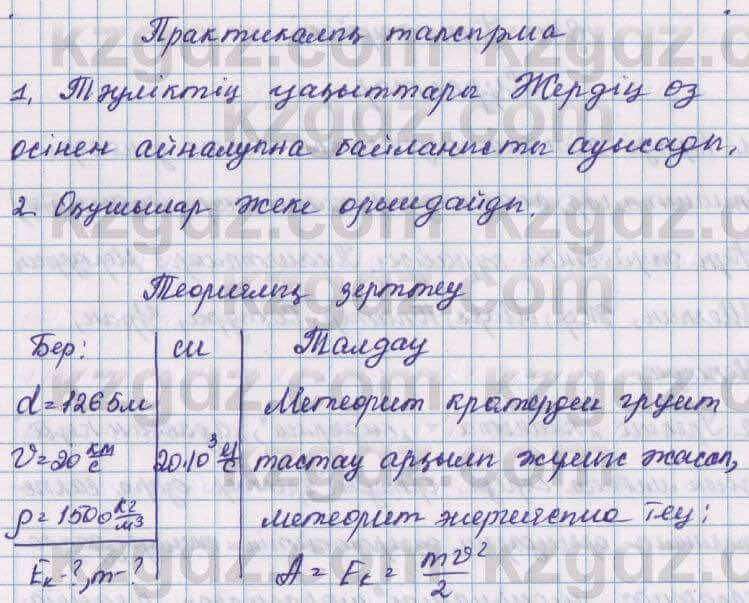 Практикалық тапсырма
1. Тәуліктің уақыттары Жердің өз
осінен айналуына байланысты ауысады.
2. Оқушылар жеке орындайды.
Теориялық зерттеу
Бер: СИ Талдау
d=1265м Метеорит кратерден грунт
υ=20 км/с 20·10³ м/с тастау арқылы жұмыс жасап,
ρ=1500 кг/м³ метеорит энергиясына тең:
Eк-?, m-? A = Eк = mυ²/2
kzgdz.com